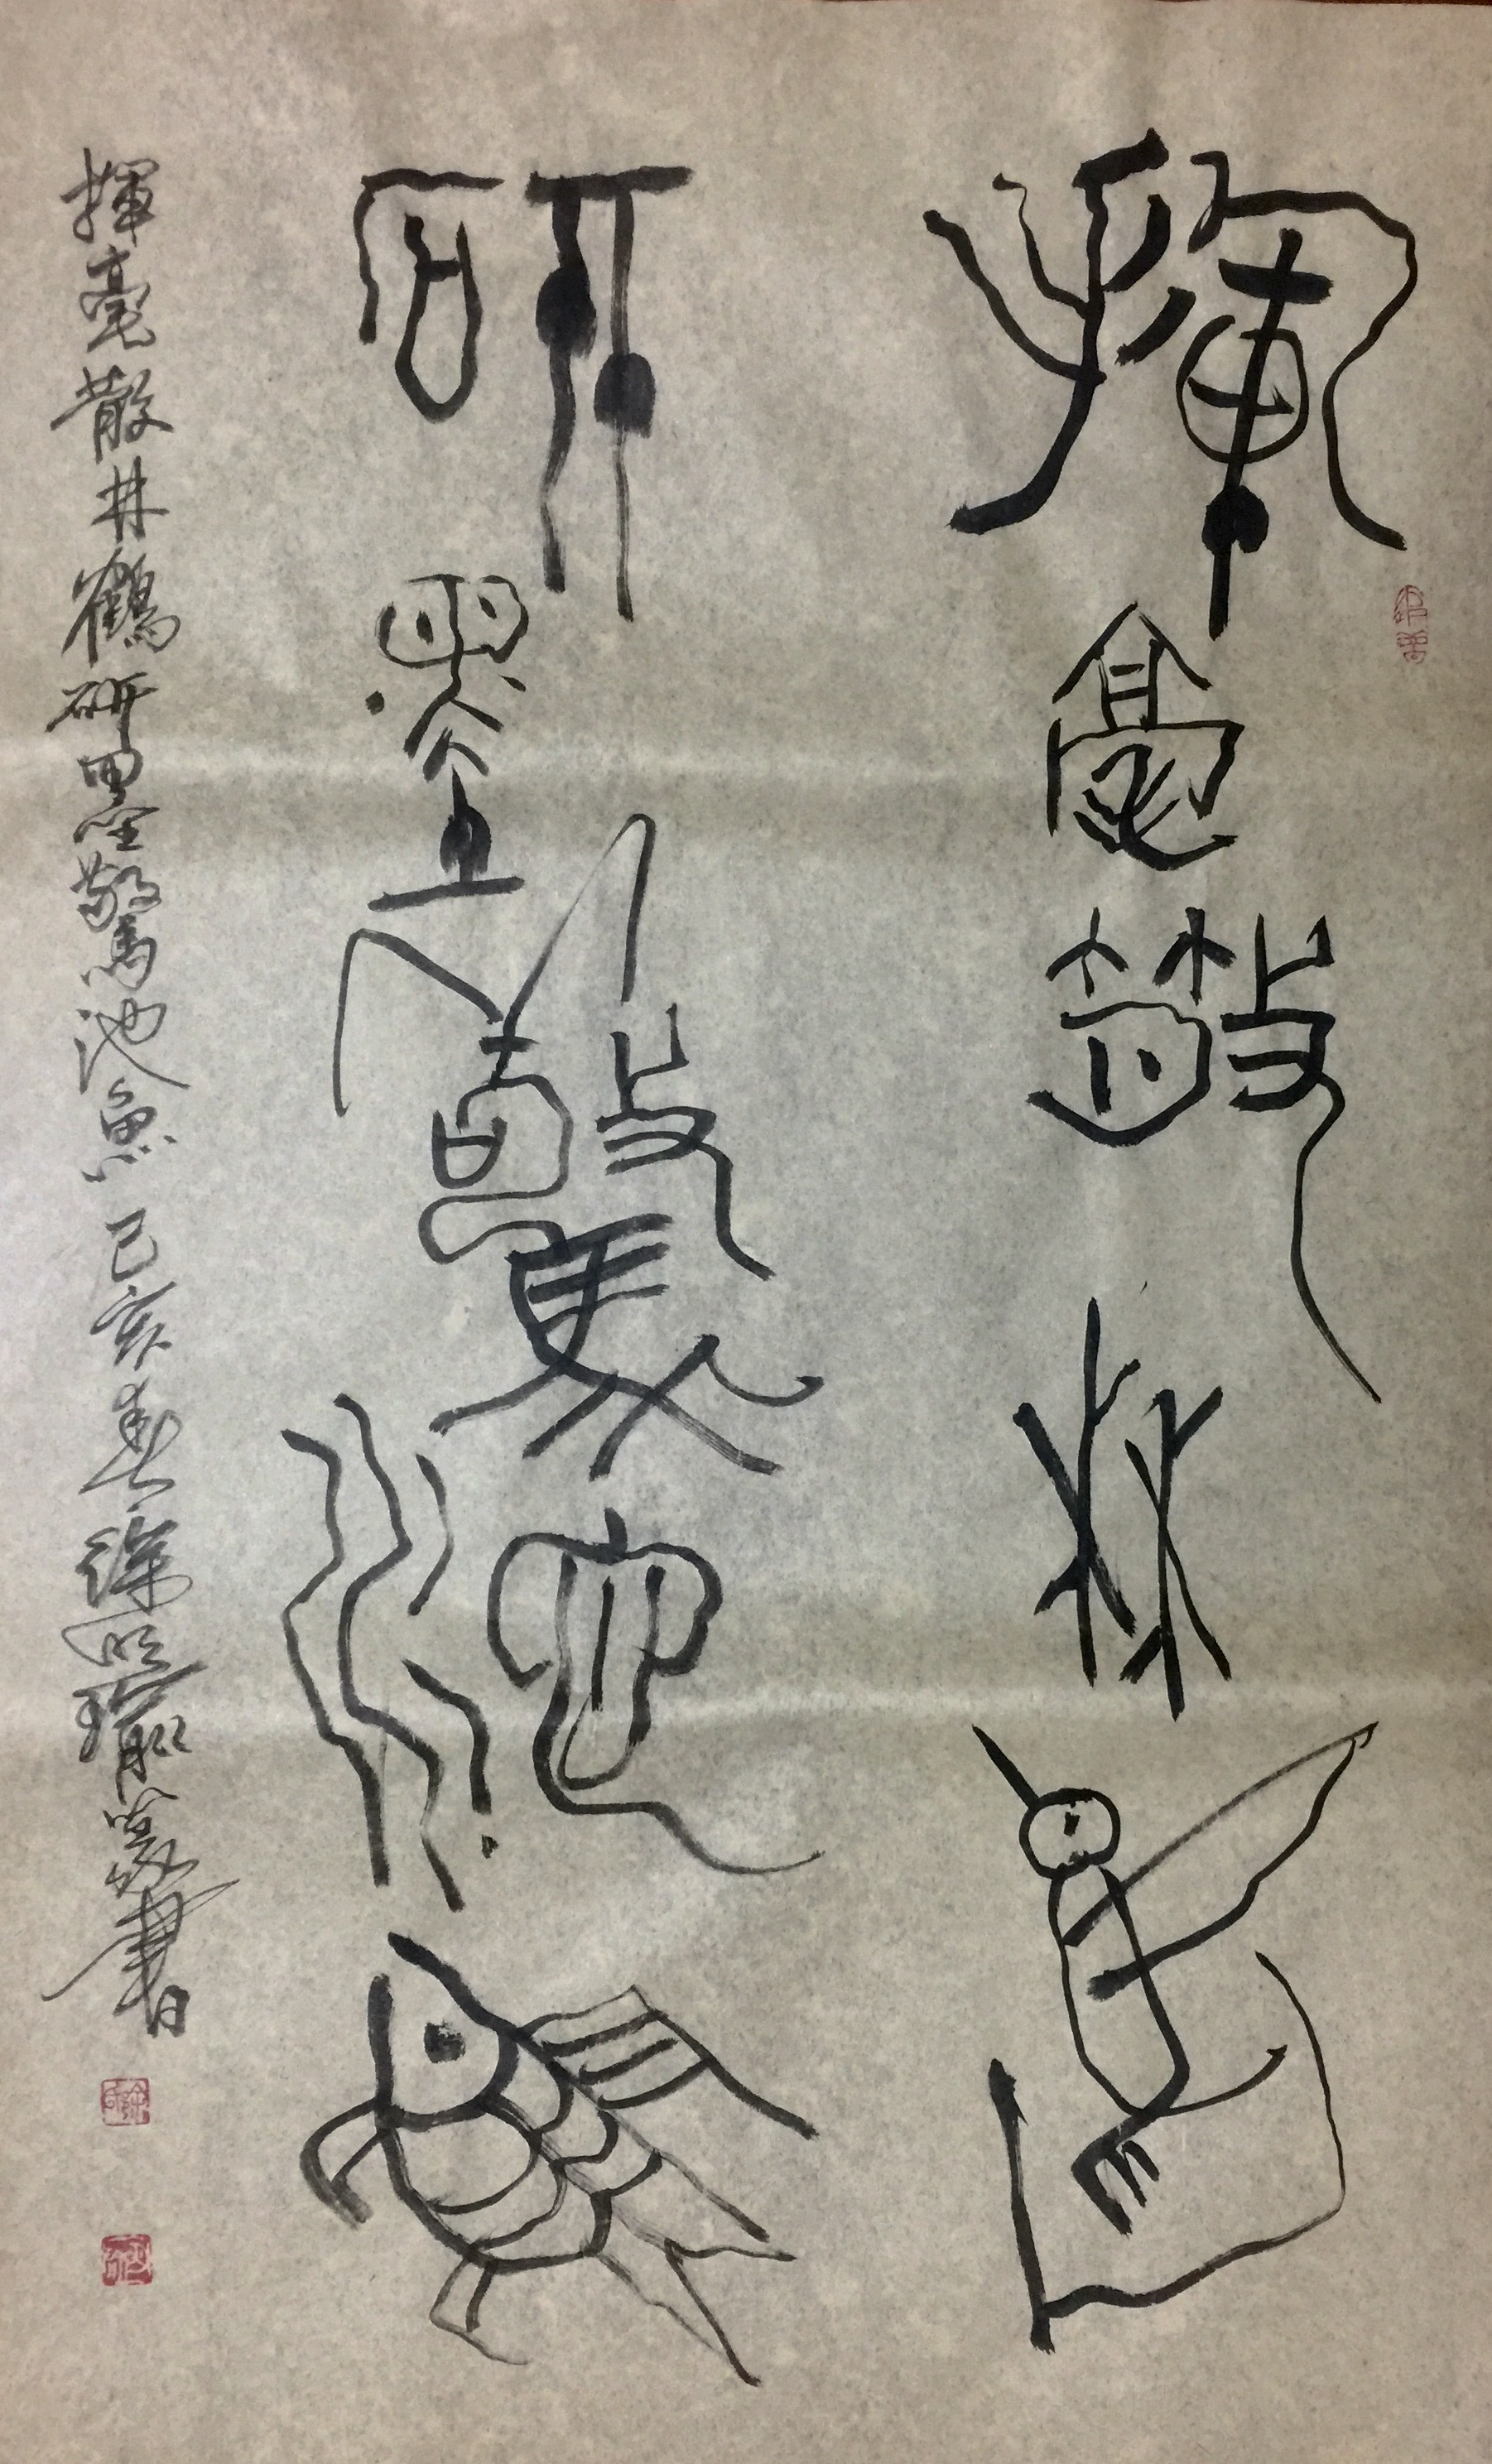 揮毫散林鶴
研墨驚池魚
揮毫散林鶴研墨驚池魚 己亥春 徐 篆書